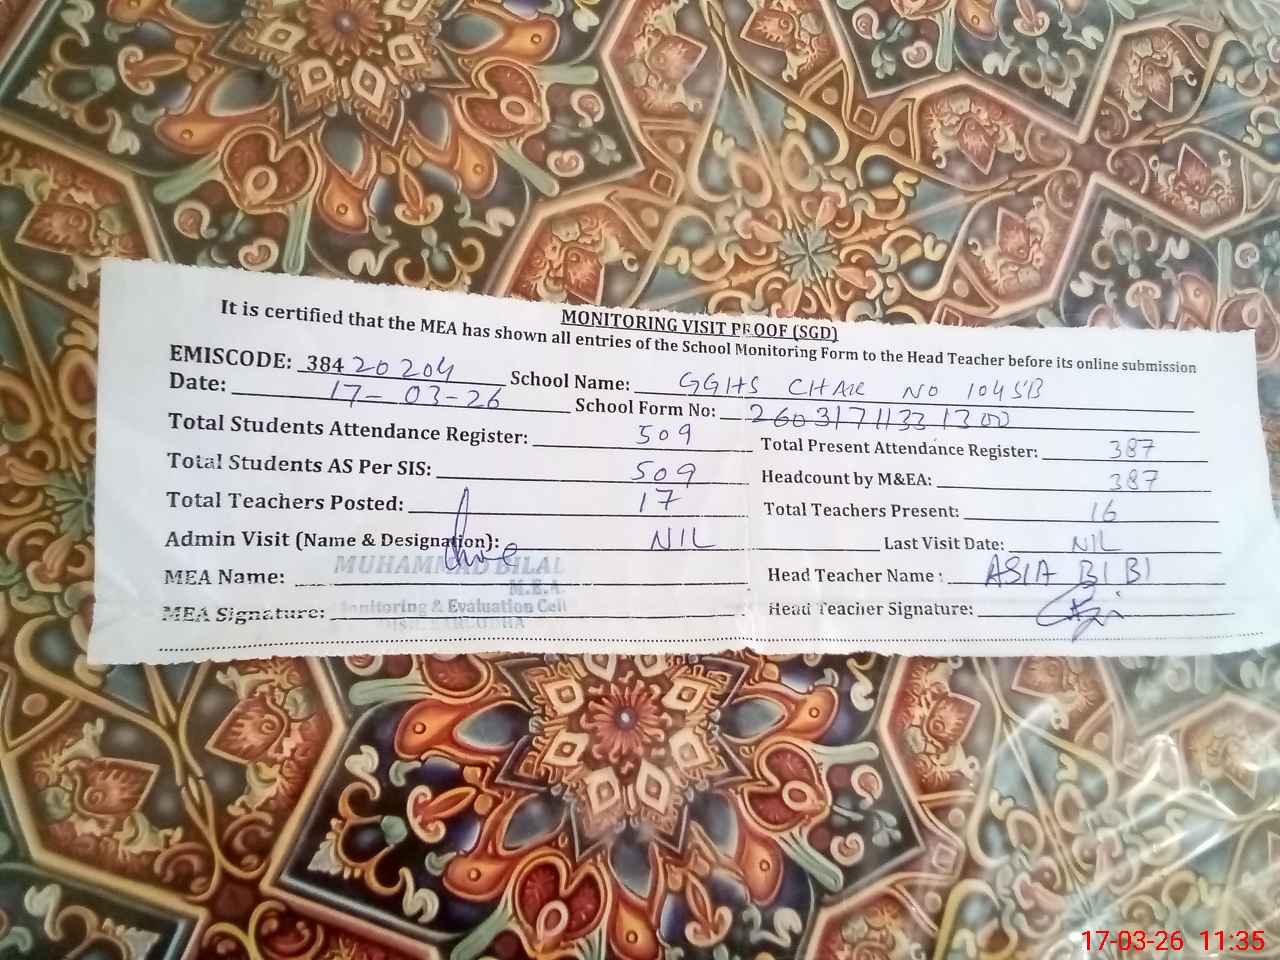 MONITORING VISIT PROOF (SGD)
It is certified that the MEA has shown all entries of the School Monitoring Form to the Head Teacher before its online submission
EMISCODE: 38420204 School Name: GGHS CHAK NO 104 SB
Date: 17-03-26 School Form No: 26031711331300
Total Students Attendance Register: 509 Total Present Attendance Register: 387
Total Students AS Per SIS: 509 Headcount by M&EA: 387
Total Teachers Posted: 17 Total Teachers Present: 16
Admin Visit (Name & Designation): NIL Last Visit Date: NIL
MEA Name: MUHAMMAD BILAL Head Teacher Name: ASIA BIBI
M.E.A
MEA Signature: Monitoring & Evaluation Cell Head Teacher Signature:
17-03-26 11:35